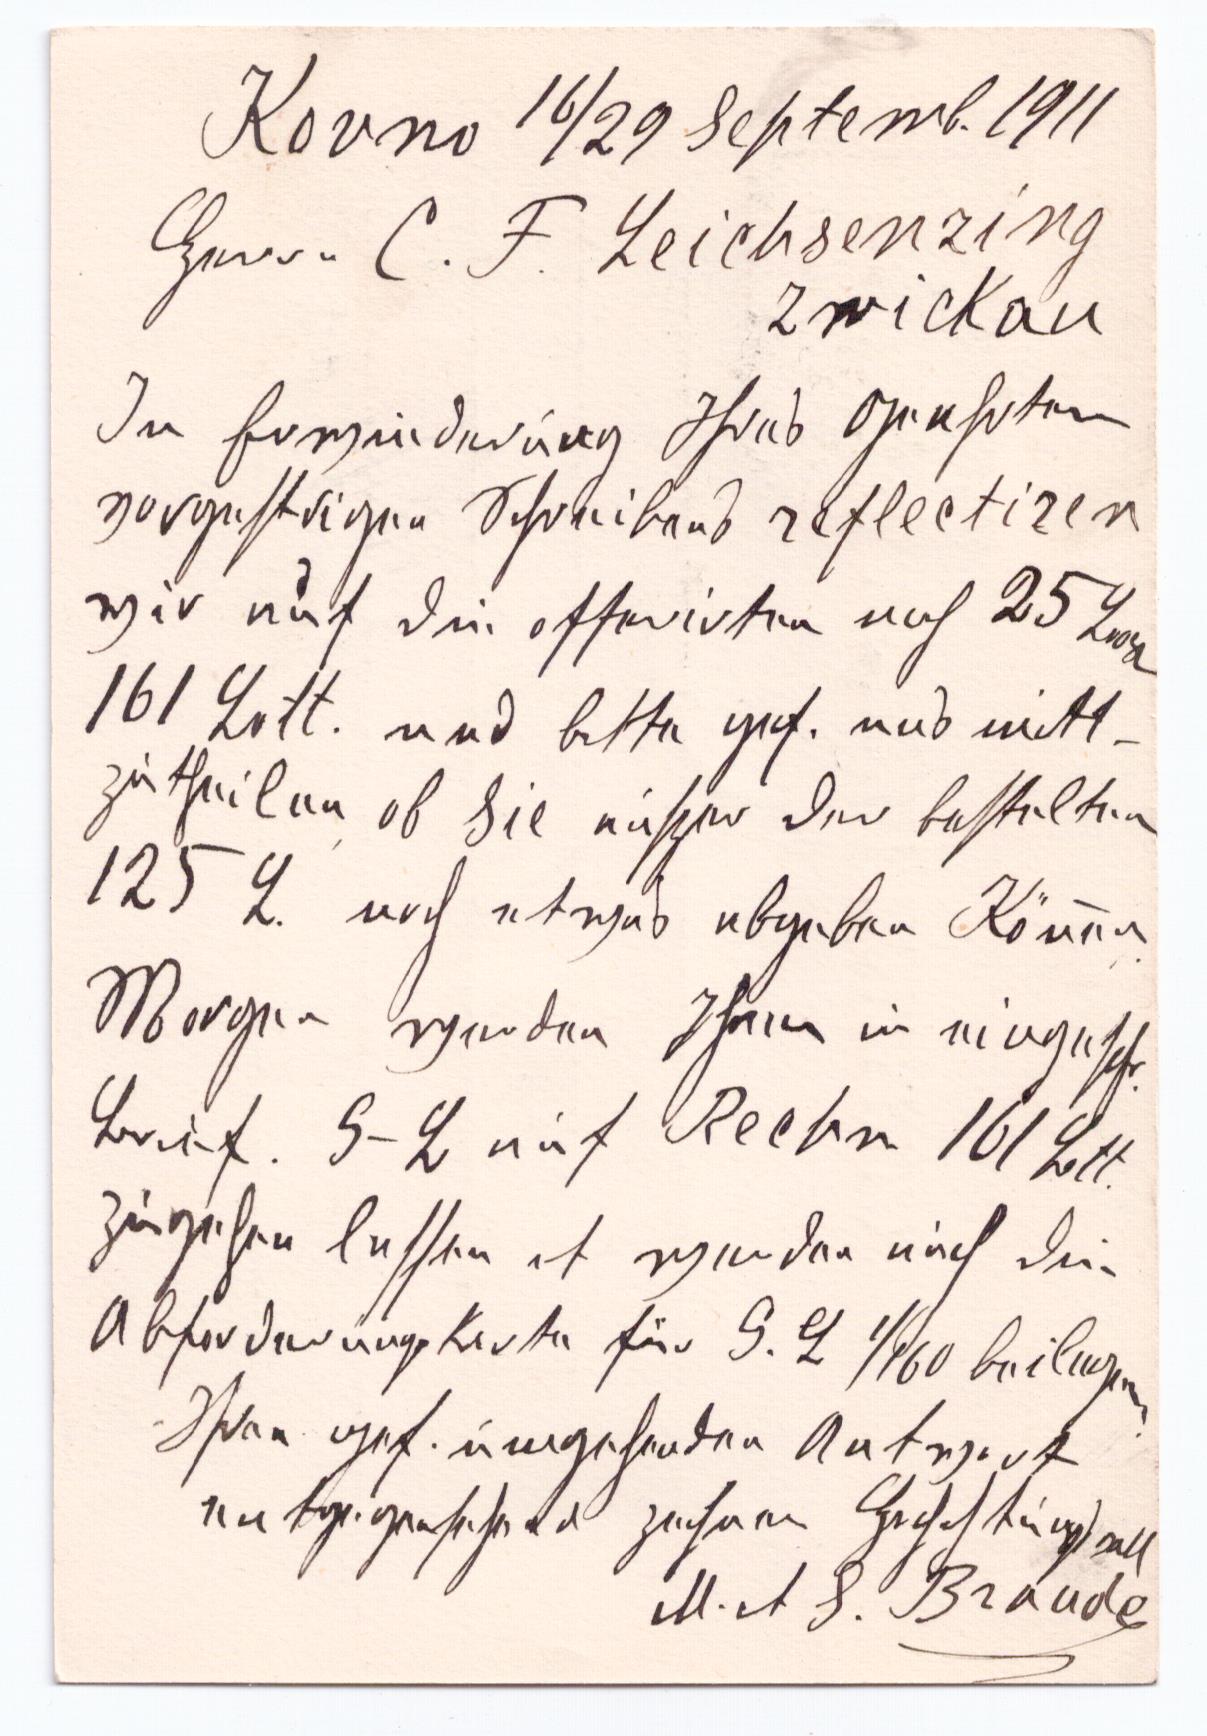 Kovno 16/29 Septemb. 1911
Herrn C. F. Leichsenzing
Zwickau
In Erwiederung Ihres geehrten
vorgestrigen Schreibens reflectiren
wir auf die offerirten noch 25 Loose
161 Lott. und bitte gef. uns mitt-
zutheilen, ob Sie außer der bestelten
125 L. noch etwas abgeben Können.
Morgen werden Ihnen in eingeschr.
Brief. G-L auf Rechn 161 Lott.
zugehen lassen et werden auch die
Abforderungskarte für G. L 1/160 beilegen.
Ihrer gef. umgehenden Antwort
entgegensehend zeichnen Hochachtungsvoll
M. et S. Braude